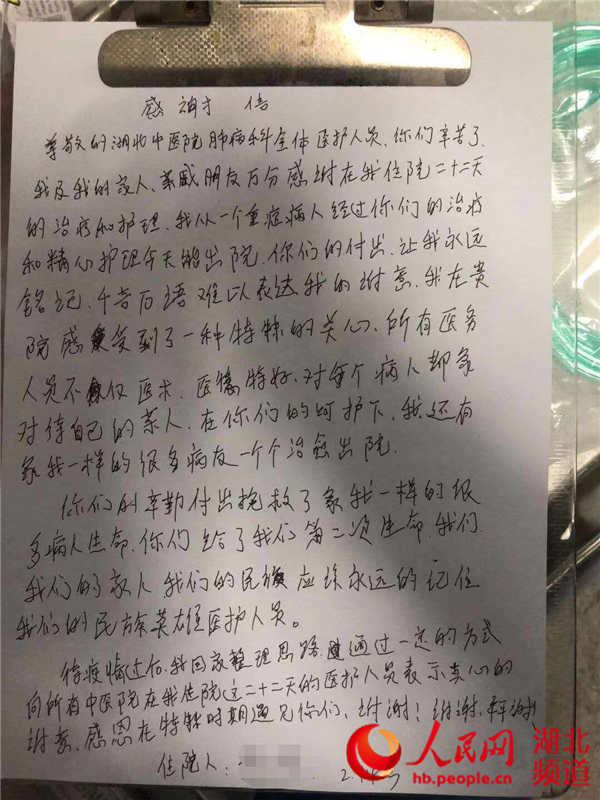 感谢信
尊敬的湖北中医院肺病科全体医护人员，你们辛苦了，
我及我的家人、亲戚朋友万分感谢在我住院二十二天
的治疗和护理，我从一个重症病人经过你们的治疗
和精心护理今天能出院，你们的付出，让我永远
铭记，千言万语难以表达我的谢意，我在贵
院感受到了一种特殊的关心，所有医务
人员不仅医术、医德特好，对每个病人都象
对待自己的亲人，在你们的呵护下，我还有
象我一样的很多病友一个个治愈出院。
你们的辛勤付出挽救了象我一样的很
多病人生命，你们给了我们第二次生命，我们
我们的家人我们的民族应该永远的记住
我们的民族英雄医护人员。
待疫情过后，我回家整理思路通过一定的方式
向所有中医院在我住院这二十二天的医护人员表示真心的
谢意，感恩在特殊时期遇见你们，谢谢！谢谢，再谢谢
住院人：
人民网 湖北
hb.people.cn 频道